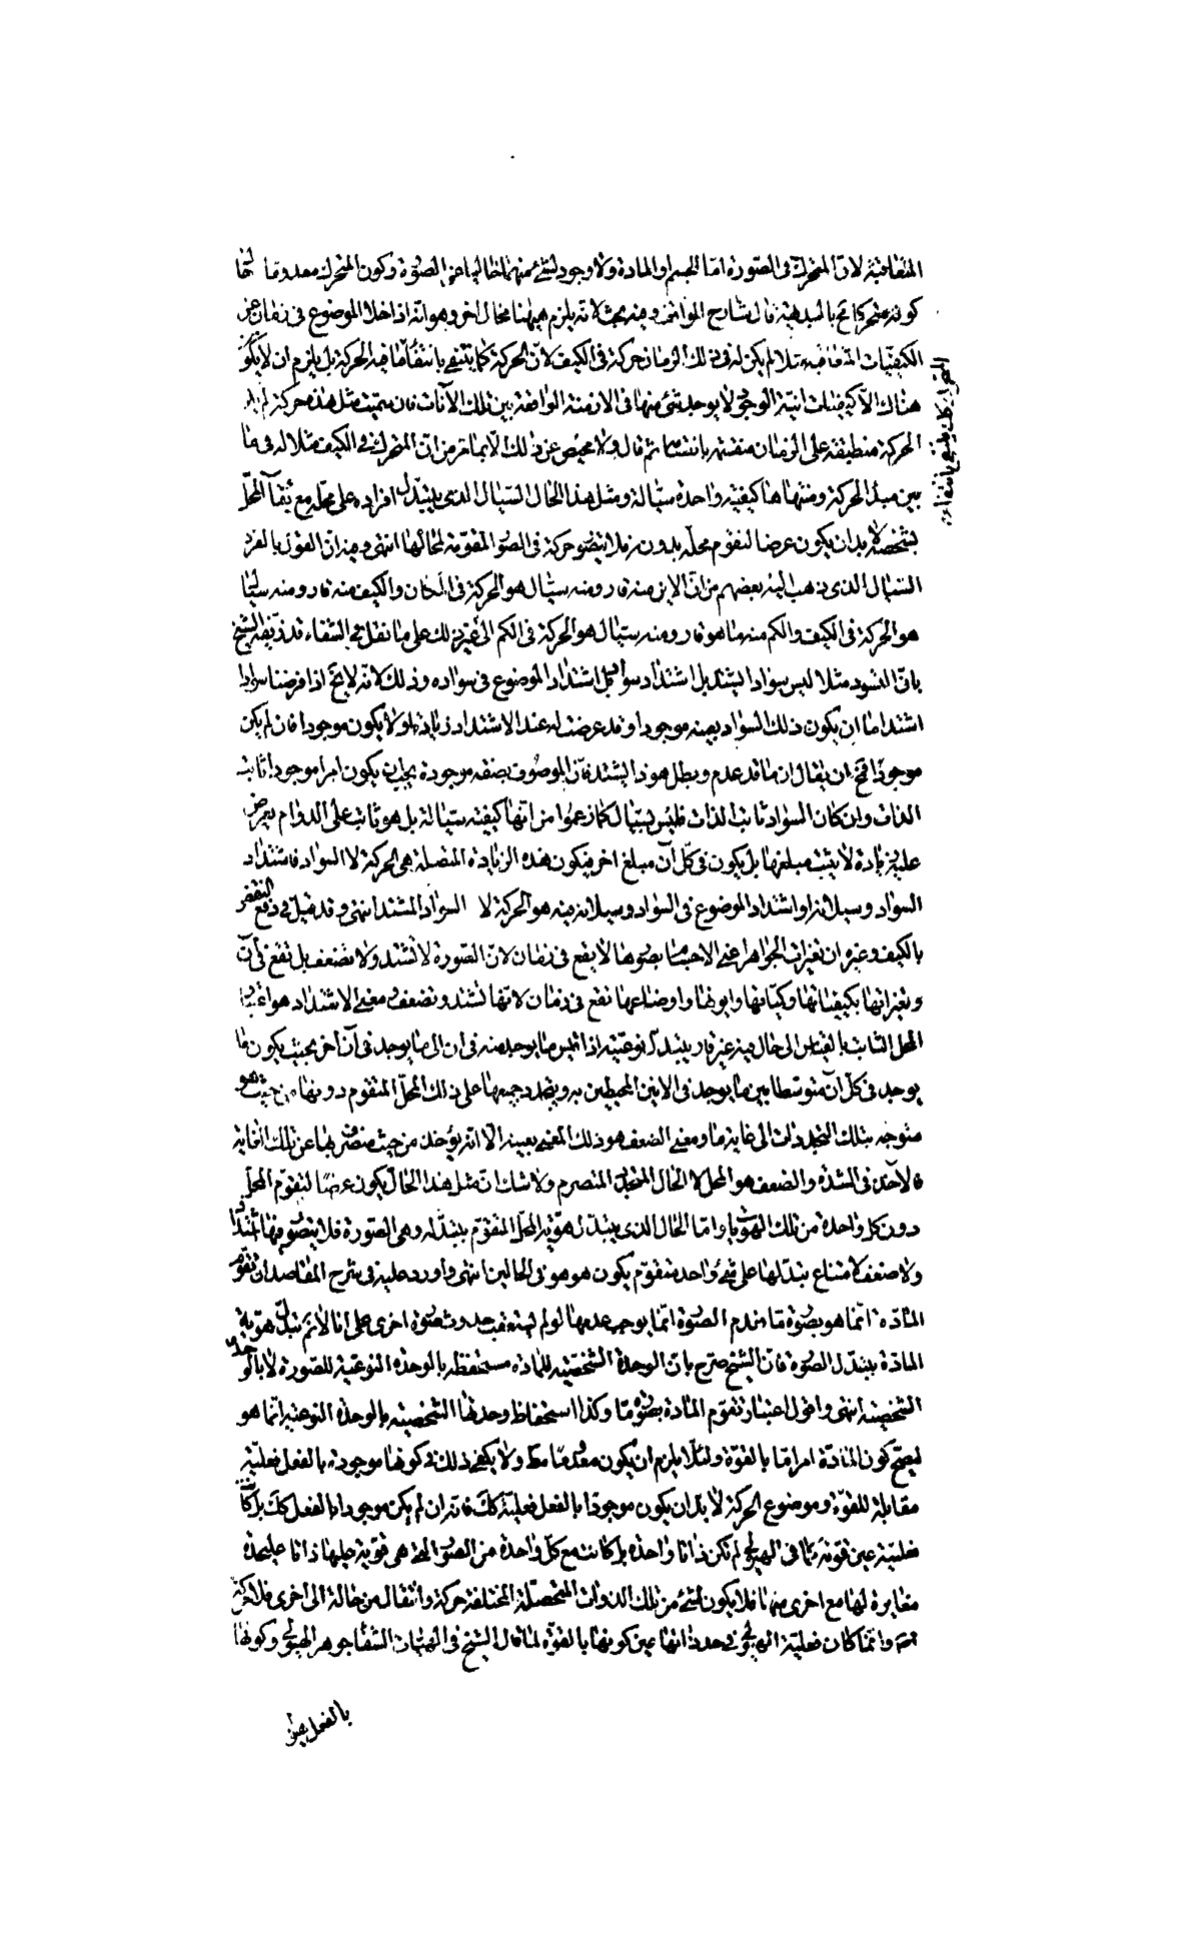 المتعاقبة لان المتحرك فى الصورة اما الجسم او المادة ولا وجود لشئ منهما خاليا عن الصورة وكون المتحرك معدوما
كونه متحركا مح بالبديهة قال شارح المواقف وفيه بحث لانه يلزم ههنا محال اخر وهو انه اذا خلا الموضوع فى زمان عن
الكيفيات المتعاقبة مثلا لم يكن له فى ذلك الزمان حركة فى الكيف لان الحركة كما ينتفى بانتفاء ما فيه الحركة بل يلزم ان لا يكون
هناك الا كيفيات انية الوجود لا يوجد شئ منها فى الازمنة الواقعة بين تلك الآنات فان سميت مثل هذه حركة لم
الحركة منطبقة على الزمان منقسمة بانقسامه ثم قال ولا محيص عن ذلك الا بما مر من ان المتحرك فى الكيف مثلا له فى ما
بين مبدأ الحركة ومنتهاها كيفية واحدة سيالة ومثل هذا الحال السيال الذى يتبدل افراده على محله مع بقاء المحل
بشخصه لا بد ان يكون عرضا لتقوم محله بدونه فلا يتصور حركة فى الصور المقومة لمحالها انتهى وفيه ان القول بالفرد
السيال الذى ذهب اليه بعضهم من ان الاين منه قار ومنه سيال هو الحركة فى المكان والكيف منه قار ومنه سيال
هو الحركة فى الكيف والكم منه ما هو قار ومنه سيال هو الحركة فى الكم الى غير ذلك على ما نقل فى الشفاء قد زيفه الشيخ
بان التسود مثلا ليس سوادا يشتد بل اشتداد سواد بل اشتداد الموضوع فى سواده وذلك لانه لا يخ اذا فرضنا سوادا
اشتد اما ان يكون ذلك السواد بعينه موجودا وقد عرضت له عند الاشتداد زيادة اولا يكون موجودا فان لم يكن
موجودا فمح ان يقال ان ما قد عدم وبطل هو ذا يشتد فان الموصوف بصفة موجودة يجب ان يكون امرا موجودا ثابت
الذات وان كان السواد ثابت الذات فليس بسيال كما زعموا من انها كيفية سيالة بل هو ثابت على الدوام يعرض
عليه زيادة لا يثبت مبلغها بل يكون فى كل آن مبلغ اخر فيكون هذه الزيادة المتصلة هى الحركة لا السواد فاشتداد
السواد وسيلانه او اشتداد الموضوع فى السواد وسيلانه فيه هو الحركة لا السواد المشتد انتهى وقد قيل فى دفع النقض
بالكيف وغيره ان تغيرات الجواهر اعنى الاجسام بصورها لا يقع فى زمان لان الصورة لا تشتد ولا تضعف بل تقع فى آن
وتغيراتها بكيفياتها وكمياتها وايونها واوضاعها تقع فى زمان لانها تشتد وتضعف ومعنى الاشتداد هو اعتبار
المحل الثابت بالقياس الى حال فيه غير قار يتبدل نوعيته اذا قيس ما يوجد منه فى آن الى ما يوجد فى آن آخر بحيث يكون ما
يوجد فى كل آن متوسطا بين ما يوجد فى الانين المحيطين به ويتجدد جميعها على ذلك المحل المتقوم دونها من حيث هو
متوجه بتلك التجددات الى غاية ما ومعنى الضعف هو ذلك المعنى بعينه الا انه يؤخذ من حيث منصرف بها عن تلك الغاية
فالآخذ فى الشدة والضعف هو المحل لا الحال المتجدد المتصرم ولا شك ان مثل هذا الحال يكون عرضا لتقوم المحل
دون كل واحدة من تلك الهويات واما الحال الذى يتبدل هوية المحل المتقوم بتبدله وهى الصورة فلا يتصور فيها اشتداد
ولا ضعف لامتناع تبدلها على شئ واحد متقوم يكون هو هو فى الحالين انتهى واورد عليه فى شرح المقاصد ان تقوم
المادة انما هو بصورة ما فعدم الصورة انما يوجب عدمها لو لم يستعقب حدوث صورة اخرى على انا لا نم تبدل هوية
المادة بتبدل الصورة فان الشيخ صرح بان الوحدة الشخصية للمادة مستحفظة بالوحدة النوعية للصورة لا بالوحدة
الشخصية انتهى واقول اعتبار تقوم المادة بصورة ما وكذا استحفاظ وحدتها الشخصية بالوحدة النوعية انما هو
ليصح كون المادة امرا ما بالقوة ولئلا يلزم ان يكون معدوما مط ولا يكفى ذلك فى كونها موجودة بالفعل فعلية
مقابلة للقوة وموضوع الحركة لا بد ان يكون موجودا بالفعل فعلية كك فانه ان لم يكن موجودا بالفعل كك بل كانت
فعليته عين قوته كما فى الهيولى لم تكن ذاتا واحدة بل كانت مع كل واحدة من الصور التى هى قوية جلها ذاتا عليحدة
مغايرة لها مع اخرى منها فلا يكون لشئ من تلك الذوات المتحصلة المختلفة حركة وانتقال من حالة الى اخرى فلا حركة
ثمه وانما كان فعلية الهيولى فى حد ذاتها عين كونها بالقوة لما قال الشيخ فى الهيات الشفا جوهر الهيولى وكونها
بالفعل